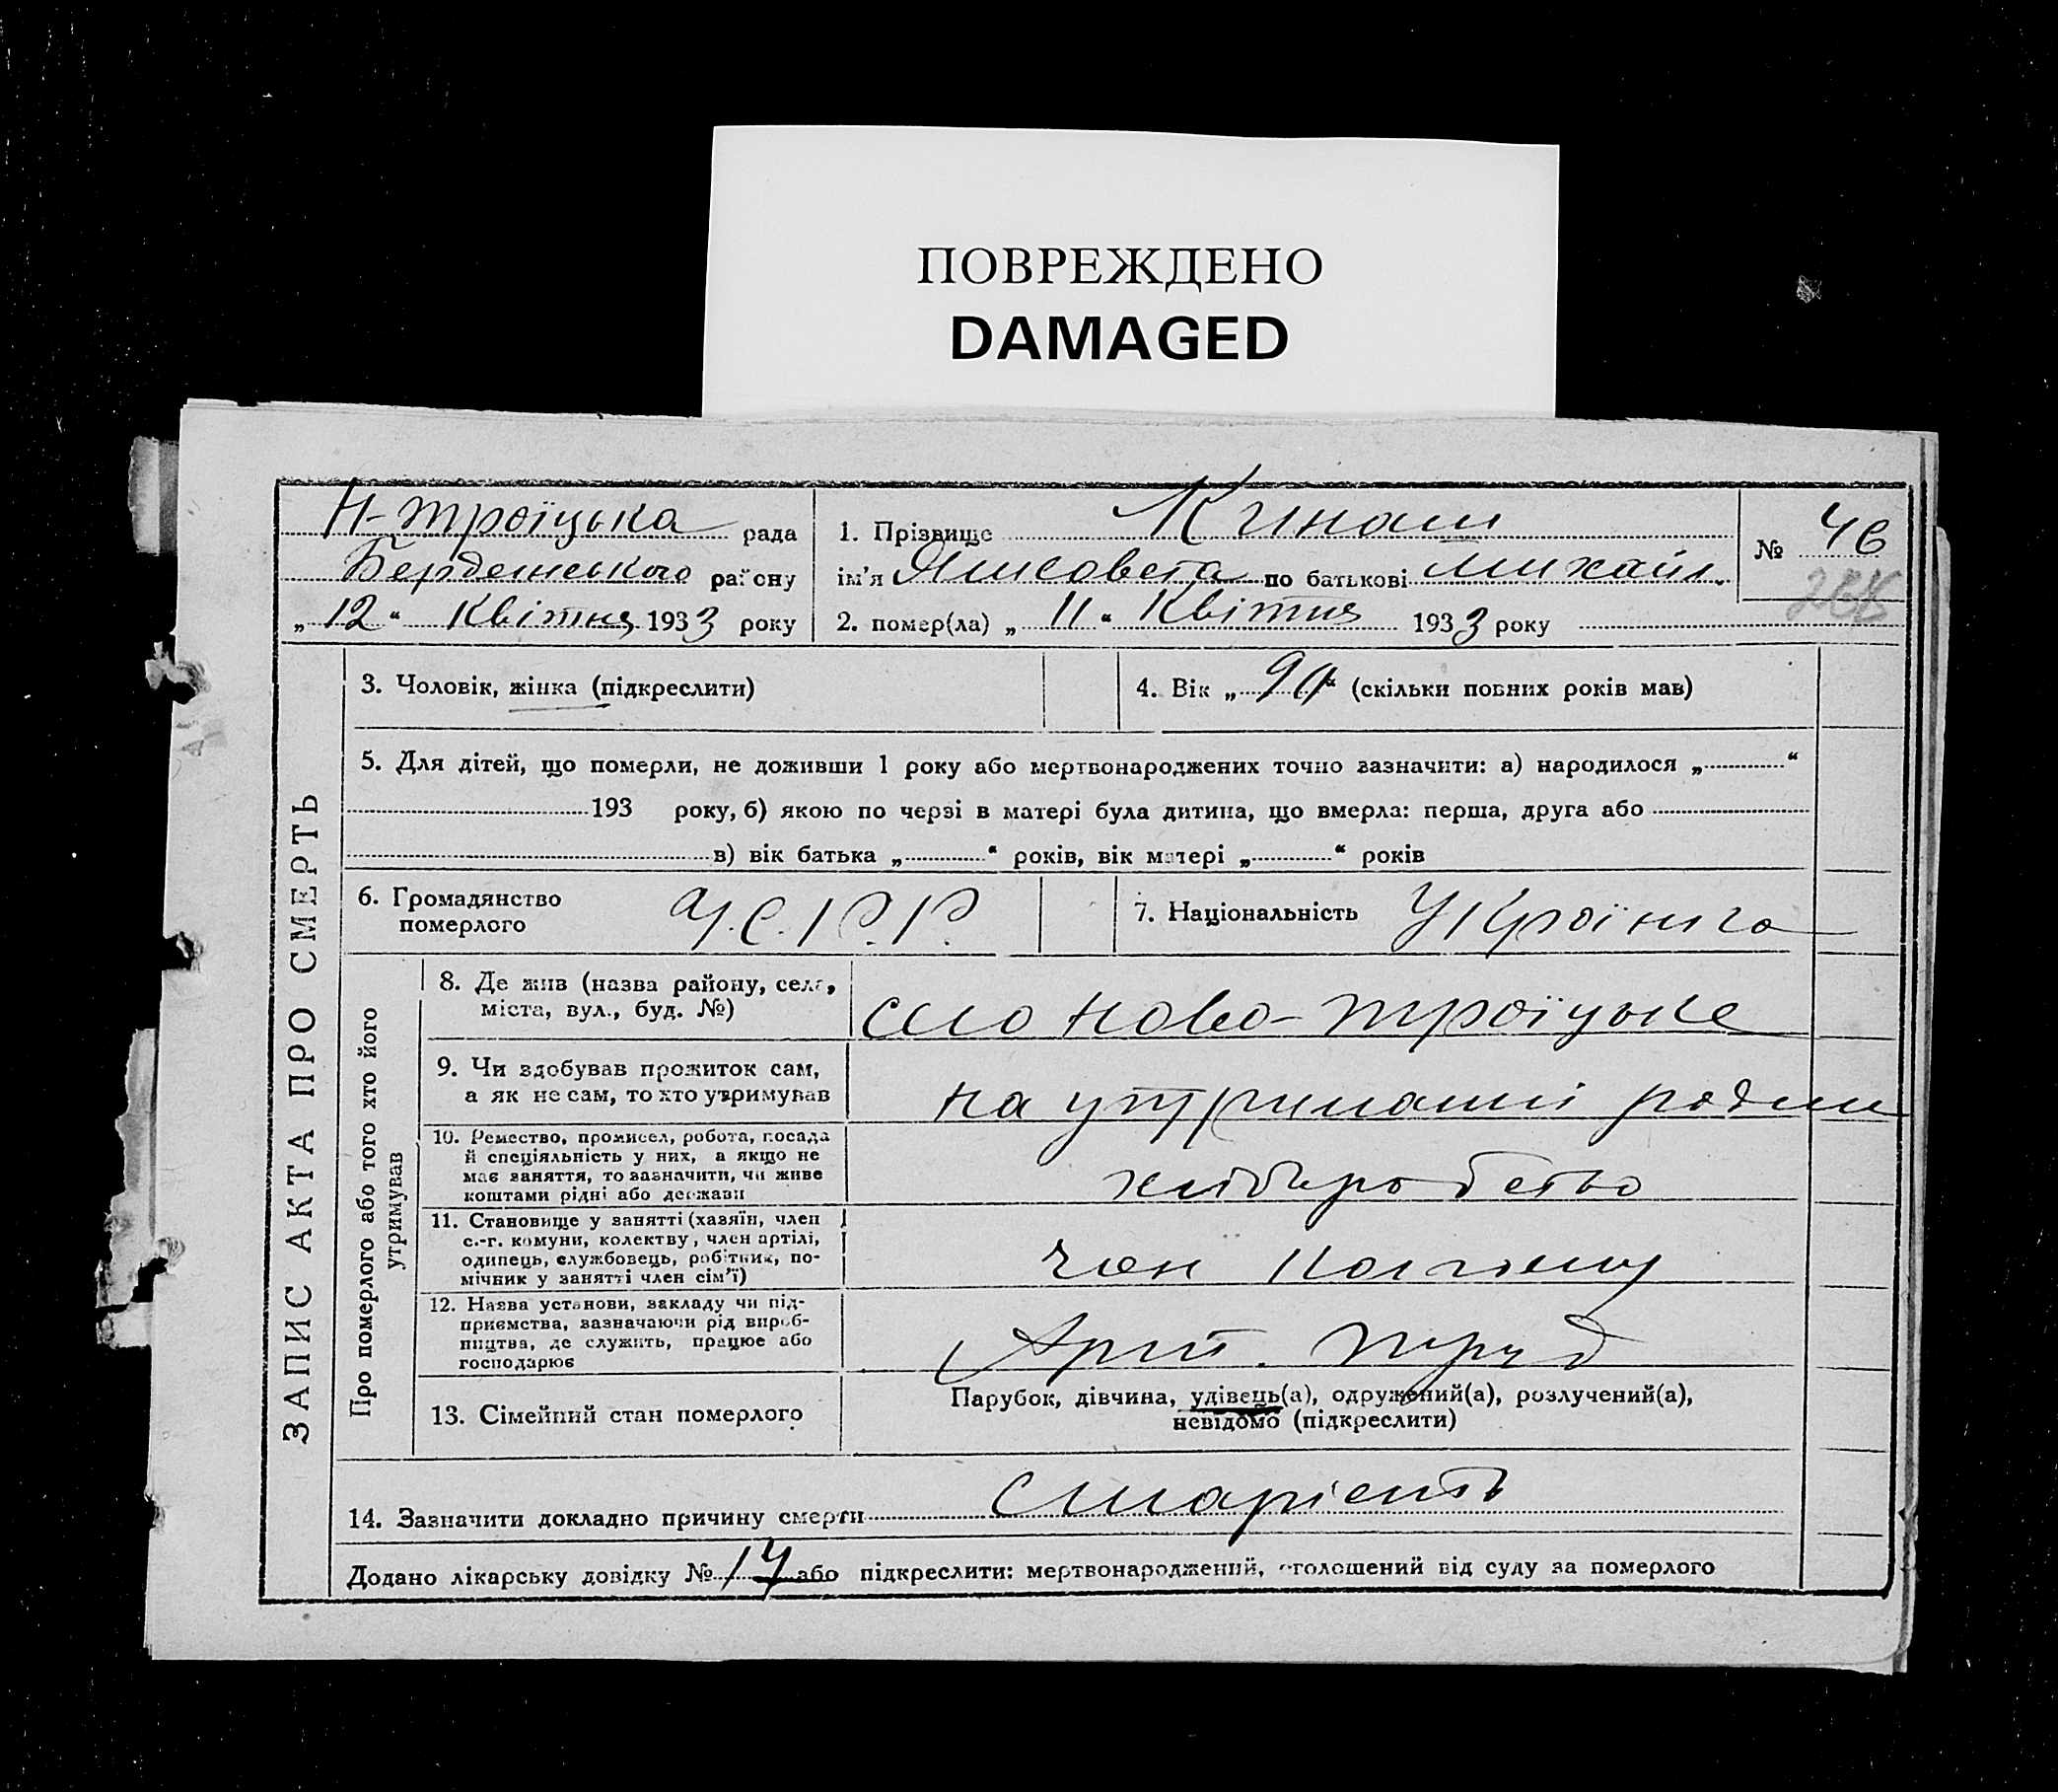 ПОВРЕЖДЕНО
DAMAGED
Н-Троїцька рада
Бердянського району
„12“ Квітня 1933 року
1. Прізвище Кинаш
ім'я Єлисовета по батькові Михайл.
2. помер(ла) „11“ Квітня 1933 року
№ 46
ЗАПИС АКТА ПРО СМЕРТЬ
3. Чоловік, жінка (підкреслити)
4. Вік „90“ (скільки повних років мав)
5. Для дітей, що померли, не доживши 1 року або мертвонароджених точно зазначити: а) народилося „ “
193 року, б) якою по черзі в матері була дитина, що вмерла: перша, друга або
в) вік батька „ “ років, вік матері „ “ років
6. Громадянство
померлого
У.С.Р.Р.
7. Національність Українка
Про померлого або того хто його
утримував
8. Де жив (назва району, села,
міста, вул., буд. №)
село Ново-Троїцьке
9. Чи здобував прожиток сам,
а як не сам, то хто утримував
на утриманні родини
10. Ремество, промисел, робота, посада
й спеціяльність у них, а якщо не
має заняття, то зазначити, чи живе
коштами рідні або держави
хліборобство
11. Становище у занятті (хазяїн, член
с.-г. комуни, колективу, член артілі,
одинець, службовець, робітник, по-
мічник у занятті член сім'ї)
член колгоспу
12. Назва установи, закладу чи під-
приємства, зазначаючи рід вироб-
ництва, де служить, працює або
господарює
Арт. Труд
13. Сімейний стан померлого
Парубок, дівчина, удівець(а), одружений(а), розлучений(а),
невідомо (підкреслити)
14. Зазначити докладно причину смерти старість
Додано лікарську довідку № 14 або підкреслити: мертвонароджений, оголошений від суду за померлого